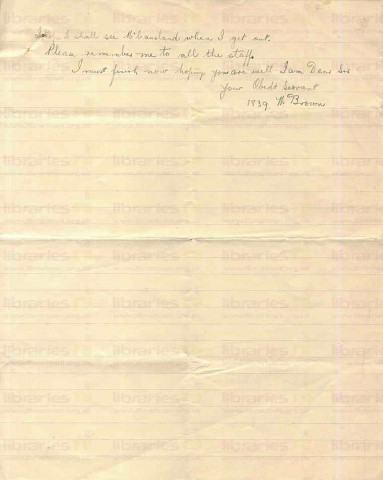 I shall see McCausland when I get out.
Please remember me to all the staff.
I must finish now hoping you are well I am Dear Sir
your Obedt Servant
1839 W Brown
libraries